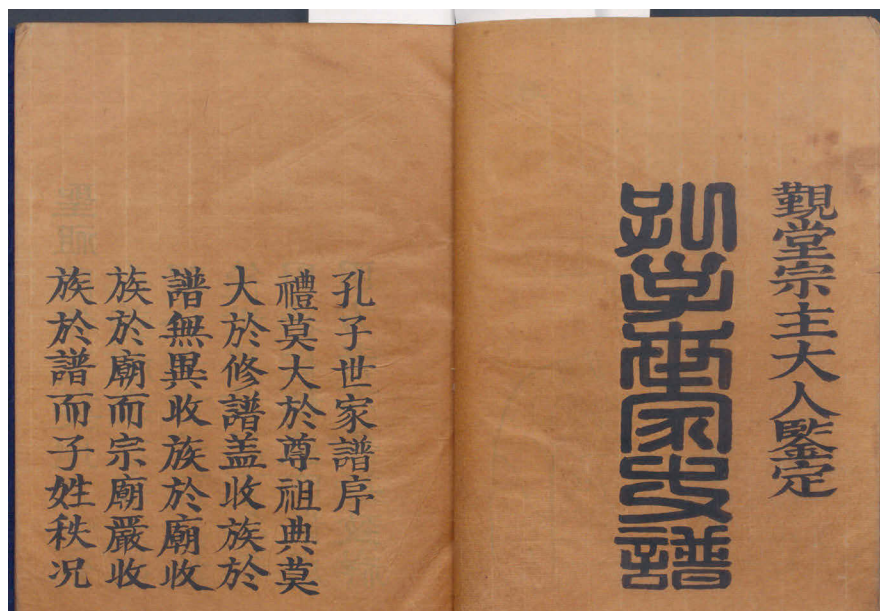 覲堂宗主大人鑒定
孔子世家支譜
孔子世家譜序
禮莫大於尊祖典莫
大於修譜盖收族於
譜無異收族於廟收
族於廟而宗廟嚴收
族於譜而子姓秩况